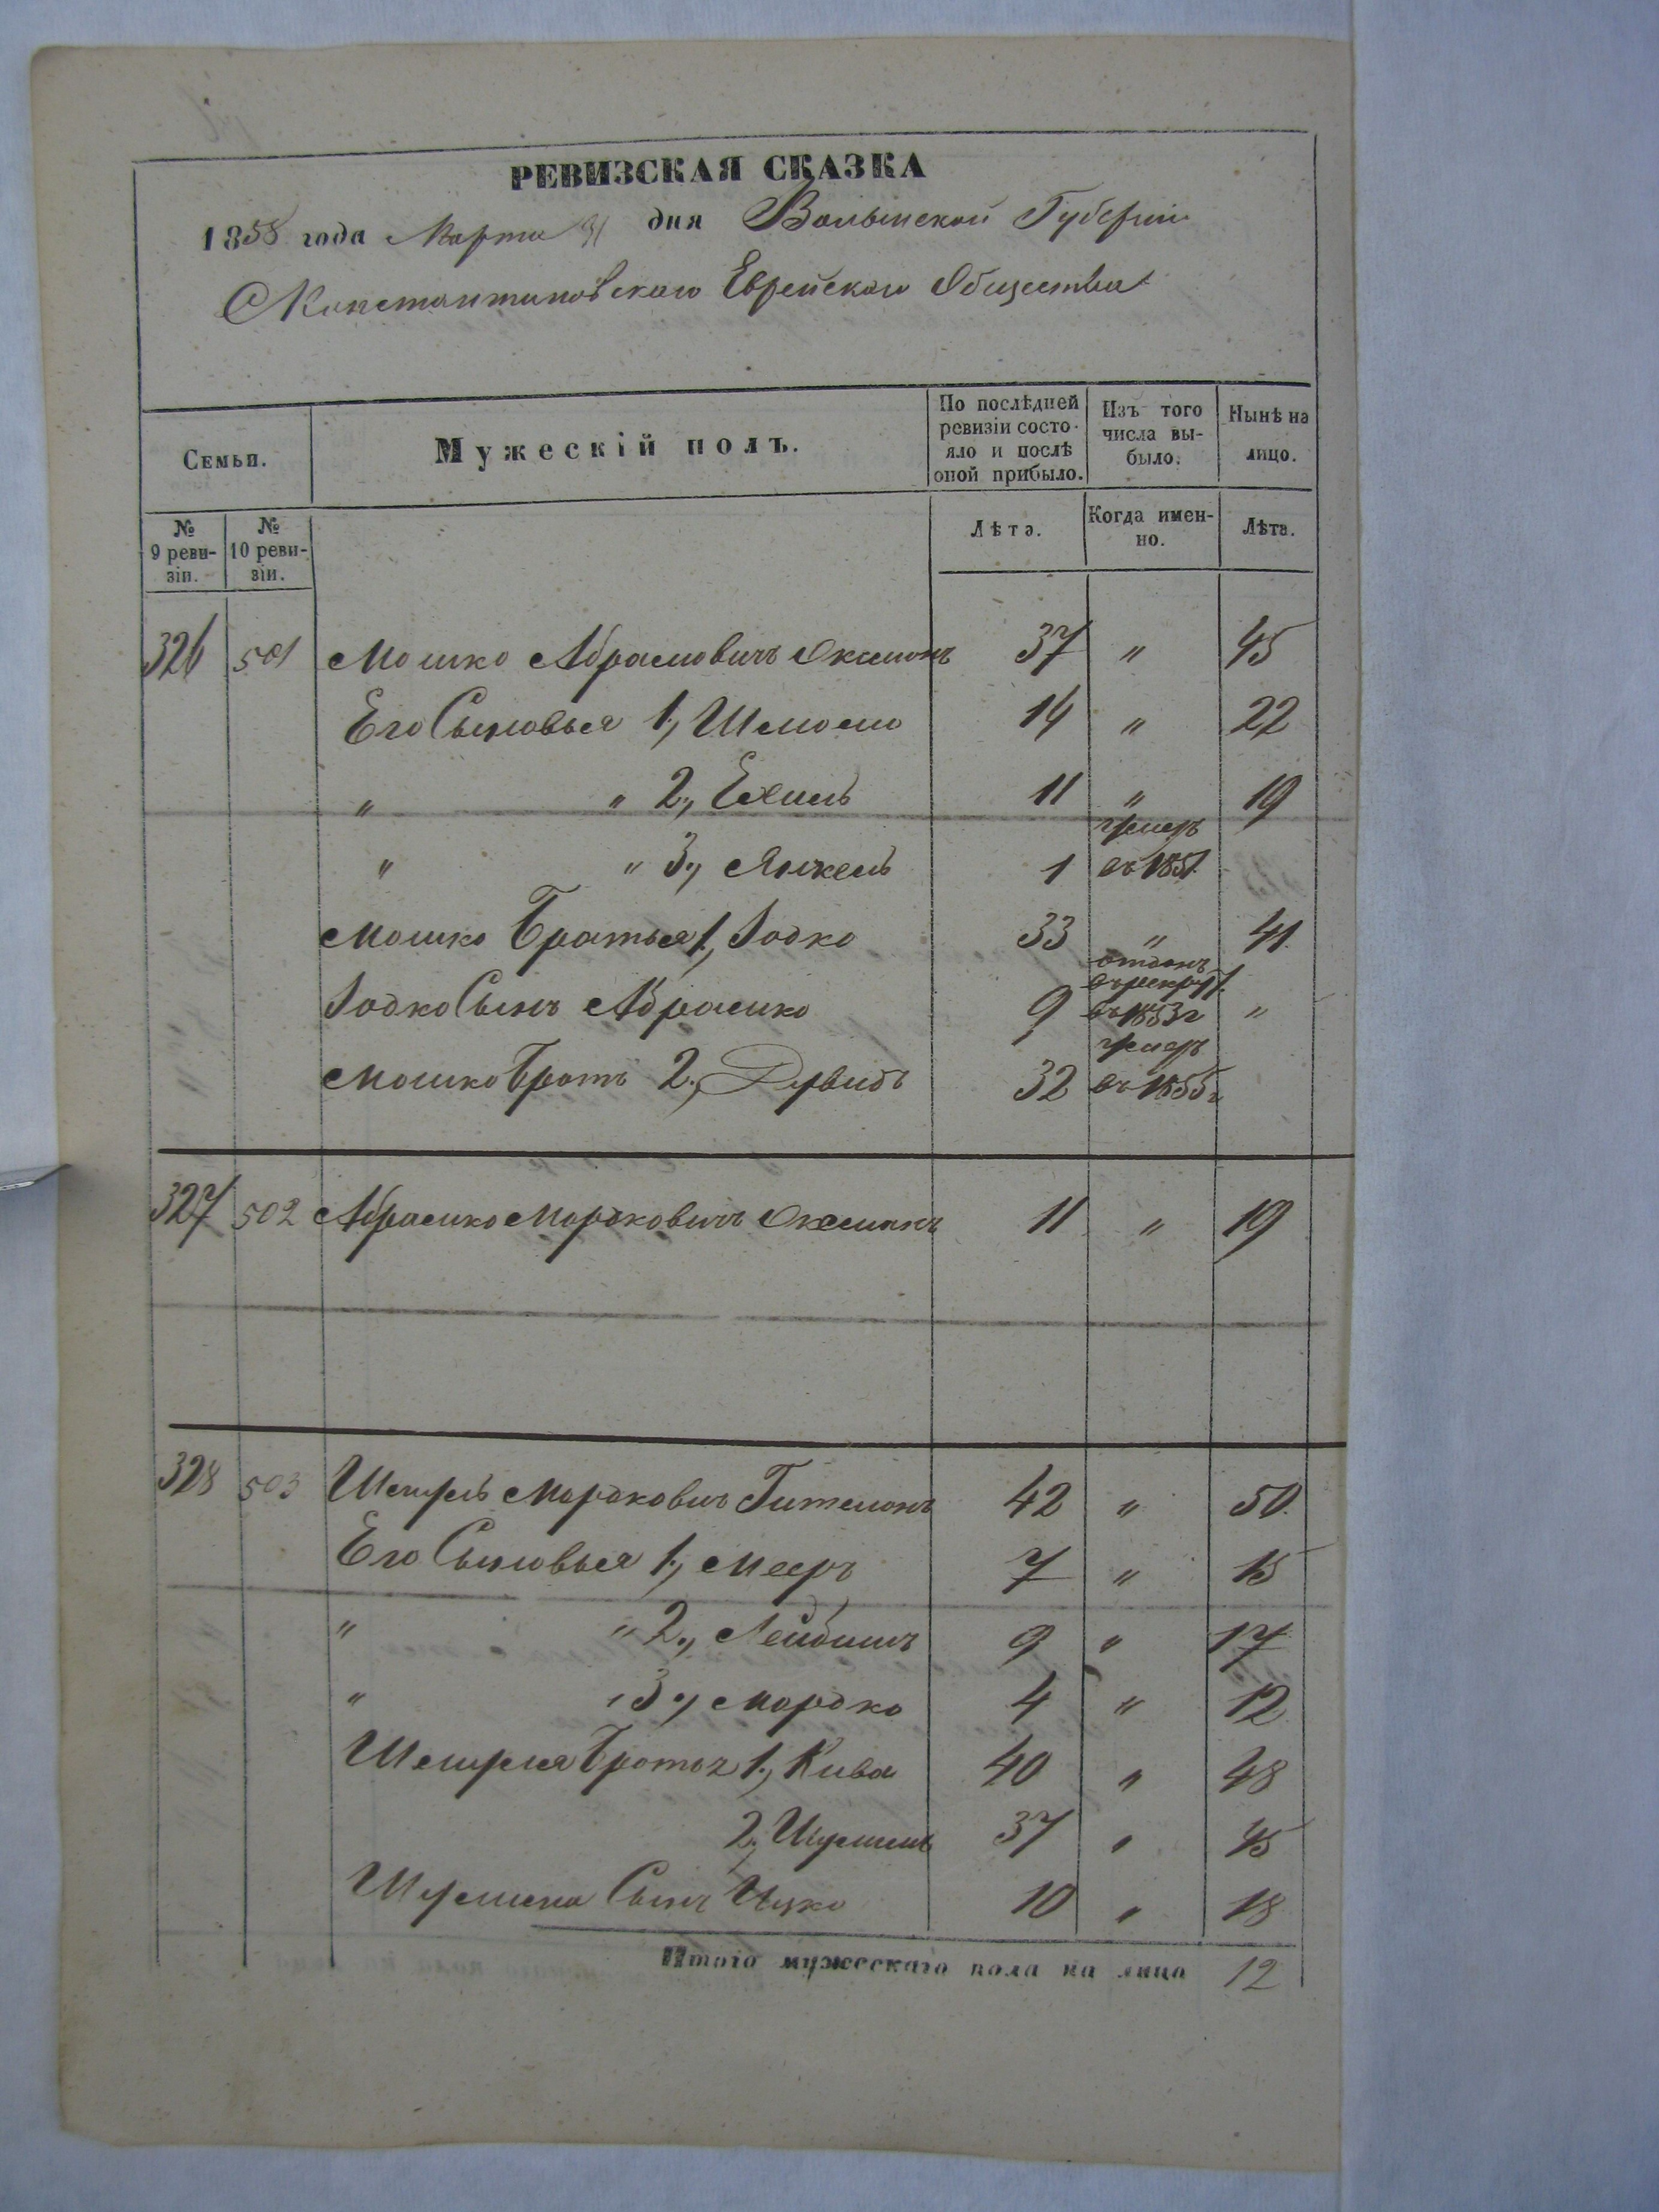 РЕВИЗСКАЯ СКАЗКА
1858 года Марта 31 дня Волынской Губернии
СКонстантиновскаго Еврейскаго Общества
Семьи.
Мужескій полъ.
По послѣдней ревизіи состояло и послѣ оной прибыло.
Изъ того числа выбыло.
Нынѣ на лицо.
№ 9 ревизіи.
№ 10 ревизіи.
Лѣта.
Когда именно.
Лѣта.
326 501 Мошко Абрамовичъ Оксманъ 37 " 45
Его Сыновья 1, Шлиомо 14 " 22
" " 2, Ехиль 11 " 19
" " 3, Янкель 1 умеръ въ 1851
Мошко Братья 1, Іодко 33 " 41
Іодко Сынъ Абрамко 9 отданъ въ рекрут. въ 1853 г "
Мошко Братъ 2, Дувидъ 32 умеръ въ 1855 г
327 502 Абрамко Мордковичъ Оксманъ 11 " 19
328 503 Мордковичъ Гительманъ 42 " 50
Его Сыновья 1, Мееръ 7 " 15
" " 2, Лейбишъ 9 " 17
" " 3, Мордко 4 " 12
Братья 1, Кива 40 " 48
2, 37 " 45
Сынъ Ицко 10 " 18
Итого мужескаго пола на лицо 12